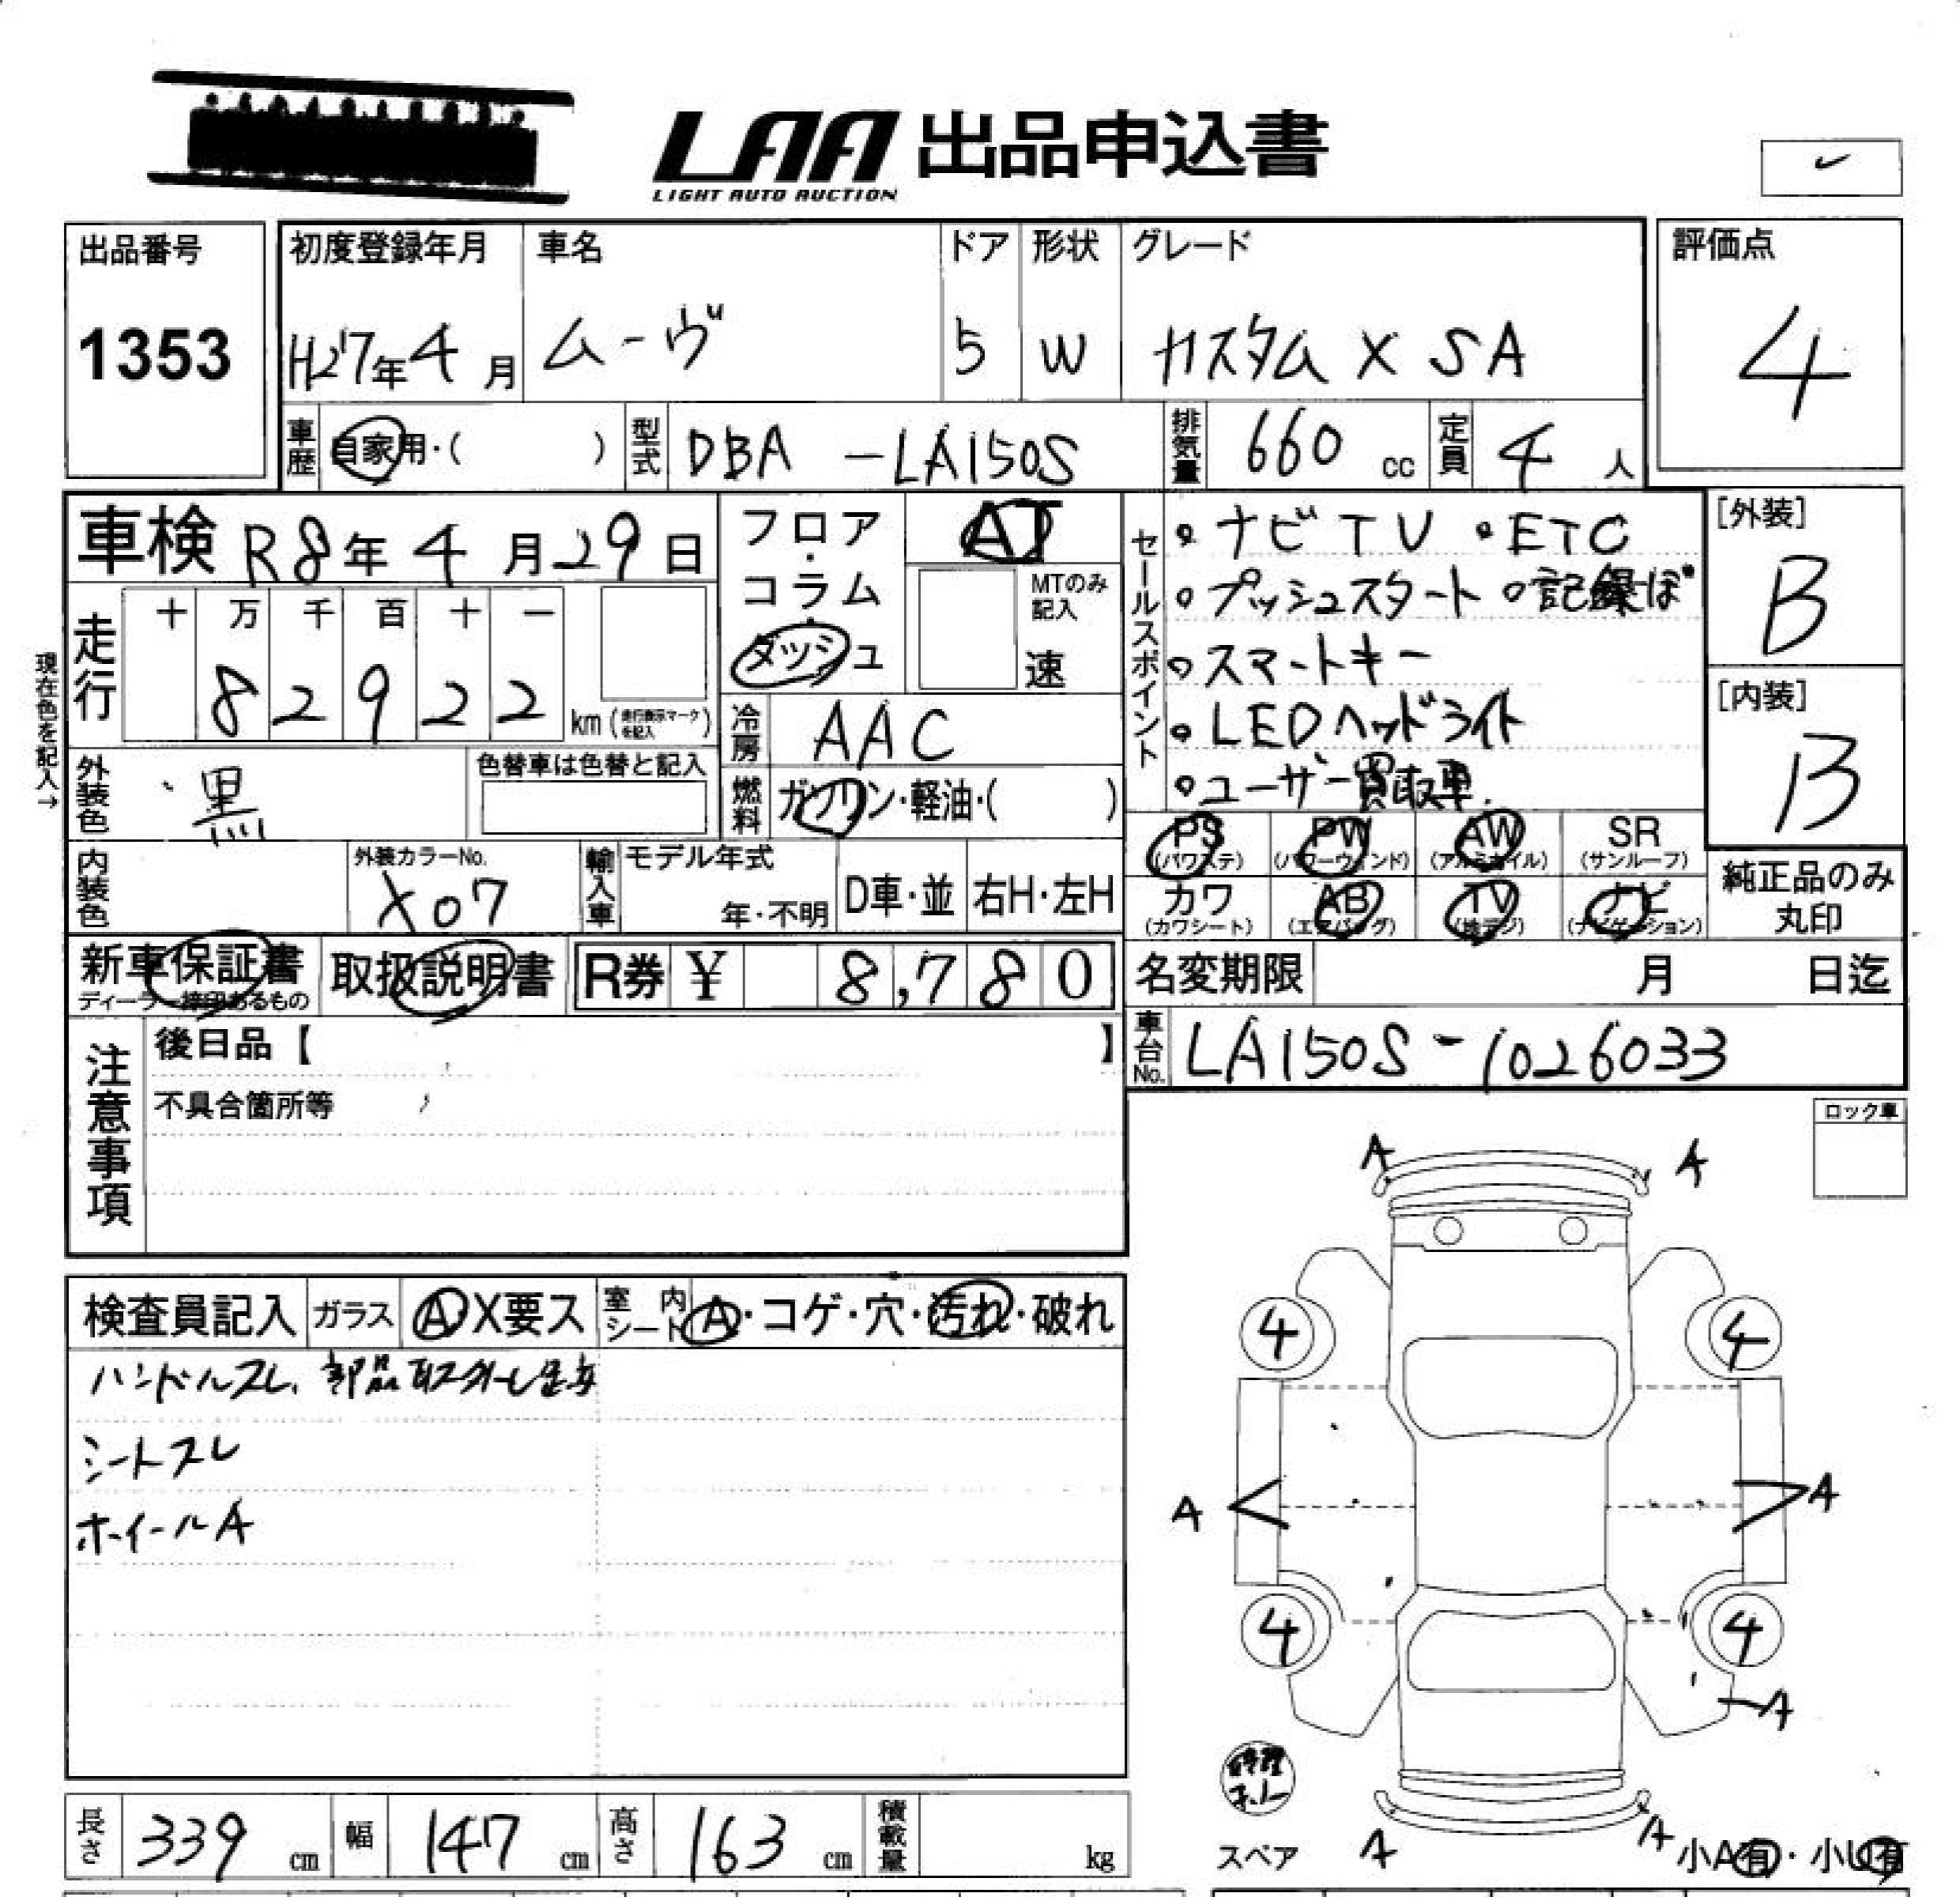 LAA 出品申込書
LIGHT AUTO AUCTION
出品番号
1353
初度登録年月
H27年4月
車名
ムーヴ
ドア
5
形状
W
グレード
カスタム X SA
評価点
4
車歴
自家用・( )
型式
DBA -LA150S
排気量
660 cc
定員
4 人
車検 R8年4月29日
走行
十 万 千 百 十 一
8 2 9 2 2
km (走行表示マークを記入)
現在色を記入→
外装色
黒
色替車は色替と記入
内装色
外装カラーNo.
X07
輸入車
モデル年式
年・不明
D車・並
右H・左H
フロア
・
コラム
・
ダッシュ
AT
MTのみ記入
速
冷房
AAC
燃料
ガソリン・軽油・( )
セールスポイント
・ナビTV ・ETC
・プッシュスタート ・記録ぼ
・スマートキー
・LEDヘッドライト
・ユーザー買取車.
[外装]
B
[内装]
B
PS (パワステ)
PW (パワーウィンド)
AW (アルミホイル)
SR (サンルーフ)
カワ (カワシート)
AB (エアバッグ)
TV (地デジ)
ナビ (ナビゲーション)
純正品のみ
丸印
新車保証書
ディーラー捺印あるもの
取扱説明書
R券 ¥ 8,780
名変期限 月 日迄
車台No.
LA150S-1026033
注意事項
後日品【 】
不具合箇所等
ロック車
検査員記入
ガラス
A・X要ス
室内シート
A・コゲ・穴・汚れ・破れ
ハンドルスレ、部品取外し
シートスレ
ホイールA
A A
4 4
A A
4 4
A
スペア
A A
小A有・小U有
長さ 339 cm
幅 147 cm
高さ 163 cm
積載量 kg